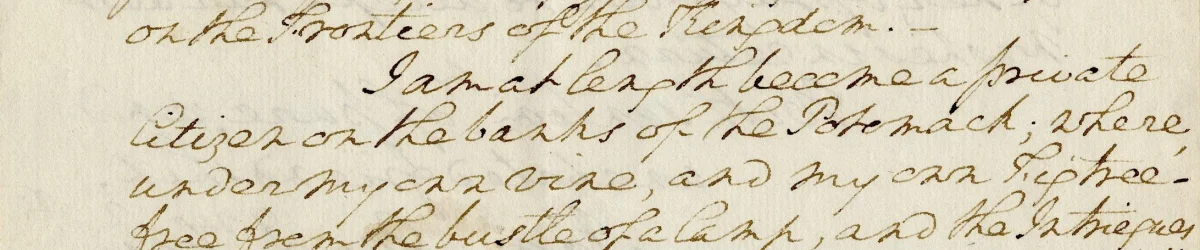 on the Frontiers of the Kingdom. —
I am at length become a private
Citizen on the banks of the Potomack; where,
under my own vine, and my own Fig tree –
free from the bustle of a Camp, and the Intrigues